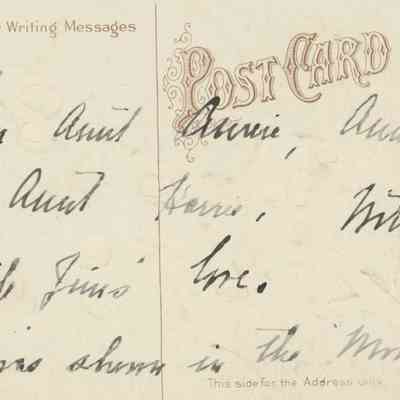 Writing Messages
POST CARD
Aunt Annie, Aun
Aunt Harrie, Wit
Jim's love.
was shown in the Mo
This side for the Address only.